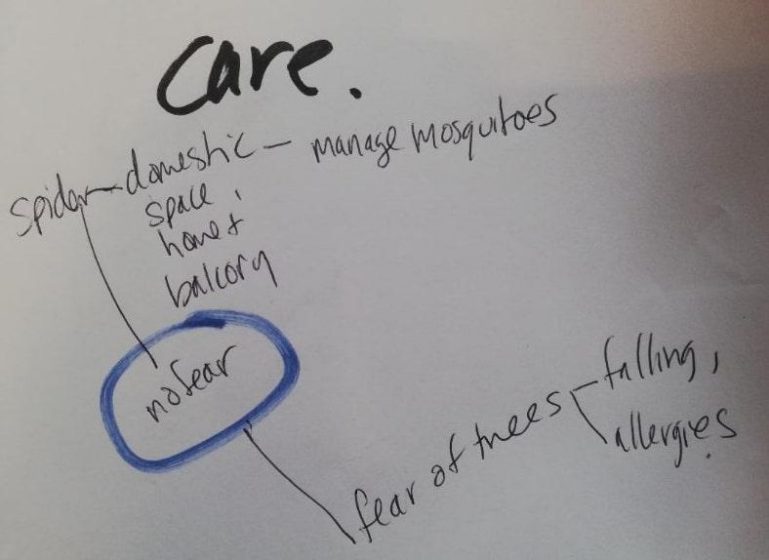 Care.
spider - domestic - manage mosquitoes
space,
home +
balcony
no fear
fear of trees - falling,
allergies